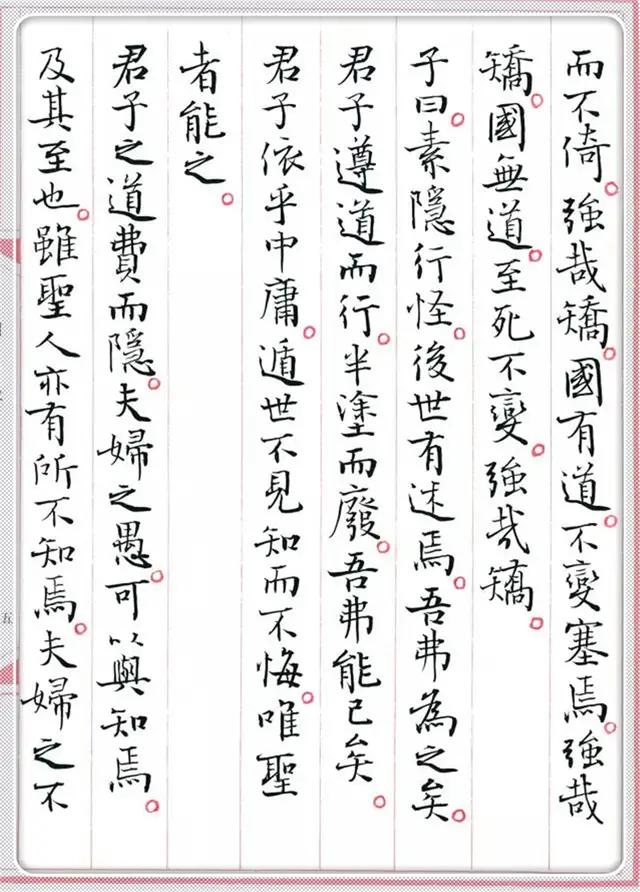 而不倚。強哉矯。國有道。不變塞焉。強哉
矯。國無道。至死不變。強哉矯。
子曰。素隱行怪。後世有述焉。吾弗為之矣。
君子遵道而行。半塗而廢。吾弗能已矣。
君子依乎中庸。遁世不見知而不悔。唯聖
者能之。
君子之道費而隱。夫婦之愚。可以與知焉。
及其至也。雖聖人亦有所不知焉。夫婦之不
五